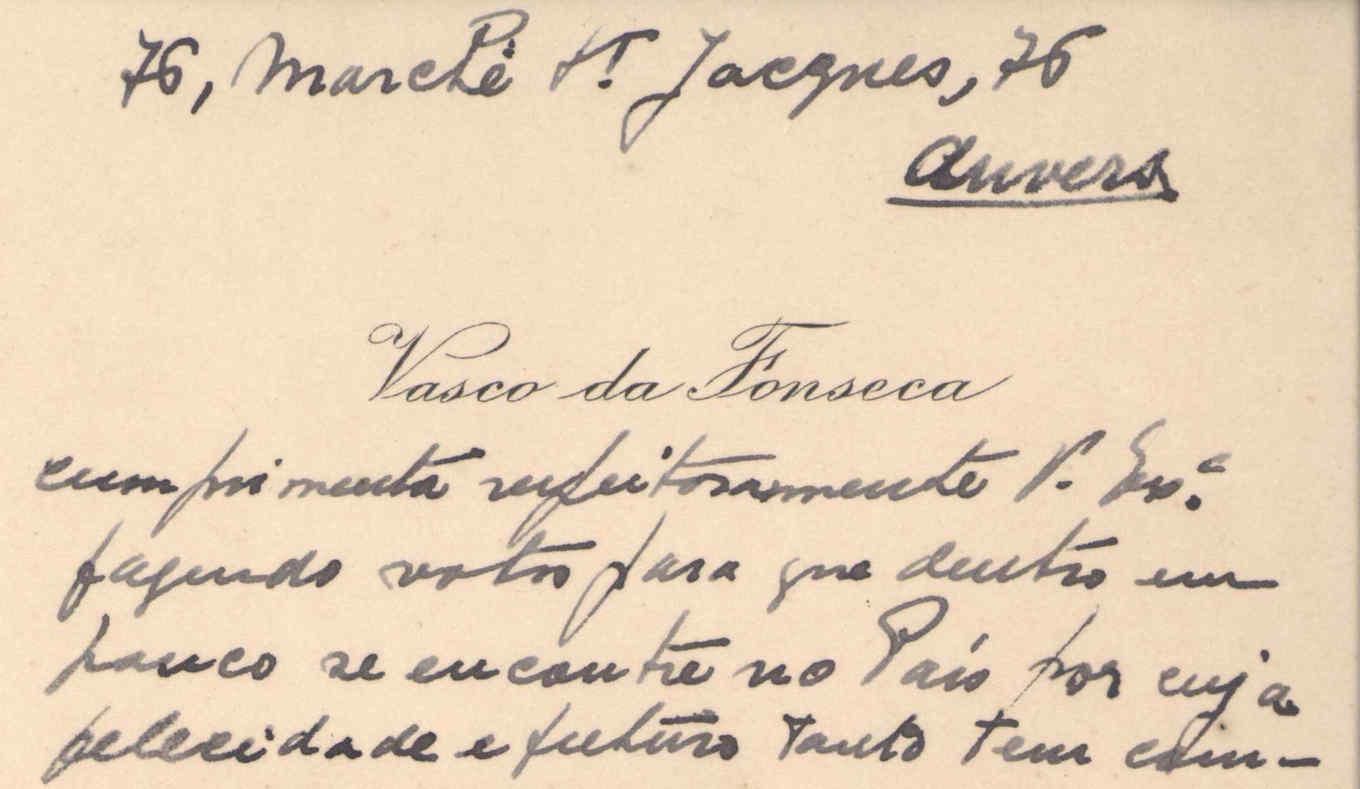 76, Marché St. Jacques, 76
Anvers
Vasco da Fonseca
cumprimenta respeitosamente V. Exª.
fazendo votos para que dentro em
pouco se encontre no País por cuja
felecidade e futuro tanto tem com-